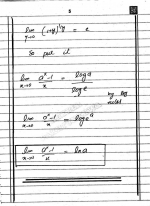 8
lim y→0 (1+y)^1/y = e
So put it
lim x→0 a^x-1/x = log a/log e
by log rules
lim x→0 a^x-1/x = log_e a
lim x→0 a^x-1/x = ln a